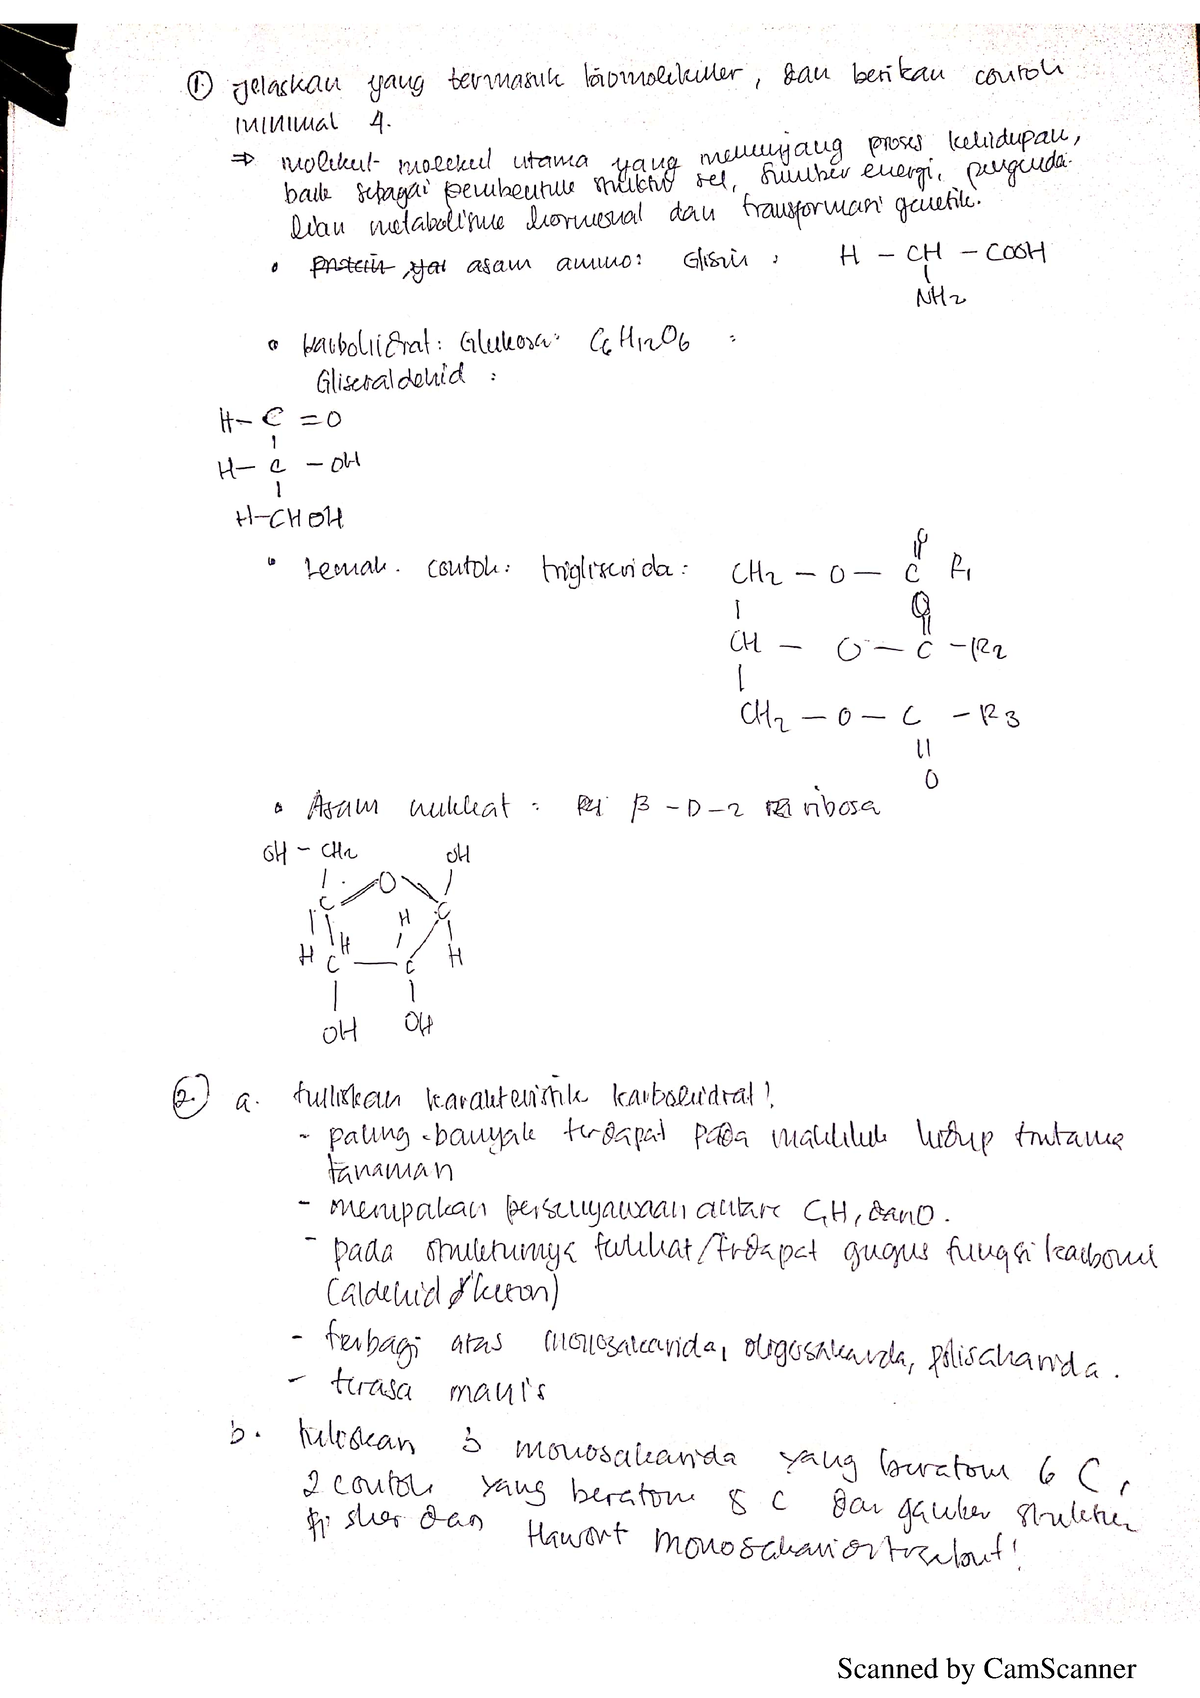 1. Jelaskan yang termasuk biomolekuler, dan berikan contoh
minimal 4.
⇒ molekul-molekul utama yang menunjang proses kehidupan,
baik sebagai pembentuk struktur sel, sumber energi, pengenda-
lian metabolisme hormonal dan transformasi genetik.
• asam amino: Glisin : H - CH - COOH
NH2
• karbohidrat: Glukosa: C6H12O6 :
Gliseraldehid :
H- C = O
H- C - OH
H-CHOH
• Lemak. contoh: trigliserida: CH2 - O - C R1
O
O
CH - O - C - R2
CH2 - O - C - R3
O
• Asam nukleat : β - D - 2 ribosa
OH - CH2 OH
O
C H C
H C H C H
OH OH
2. a. tuliskan karakteristik karbohidrat!
- paling banyak terdapat pada makhluk hidup trutama
tanaman
- merupakan persenyawaan antara C, H, dan O.
- pada strukturnya terlihat/trdapat gugus fungsi karbonil
(aldehid / keton)
- terbagi atas monosakarida, oligosakarida, polisakarida.
- terasa manis
b. tuliskan 3 monosakarida yang beratom 6 C,
2 contoh yang beratom 5 C dan gambar struktur
fisher dan Hawort monosakarida trsebut!
Scanned by CamScanner